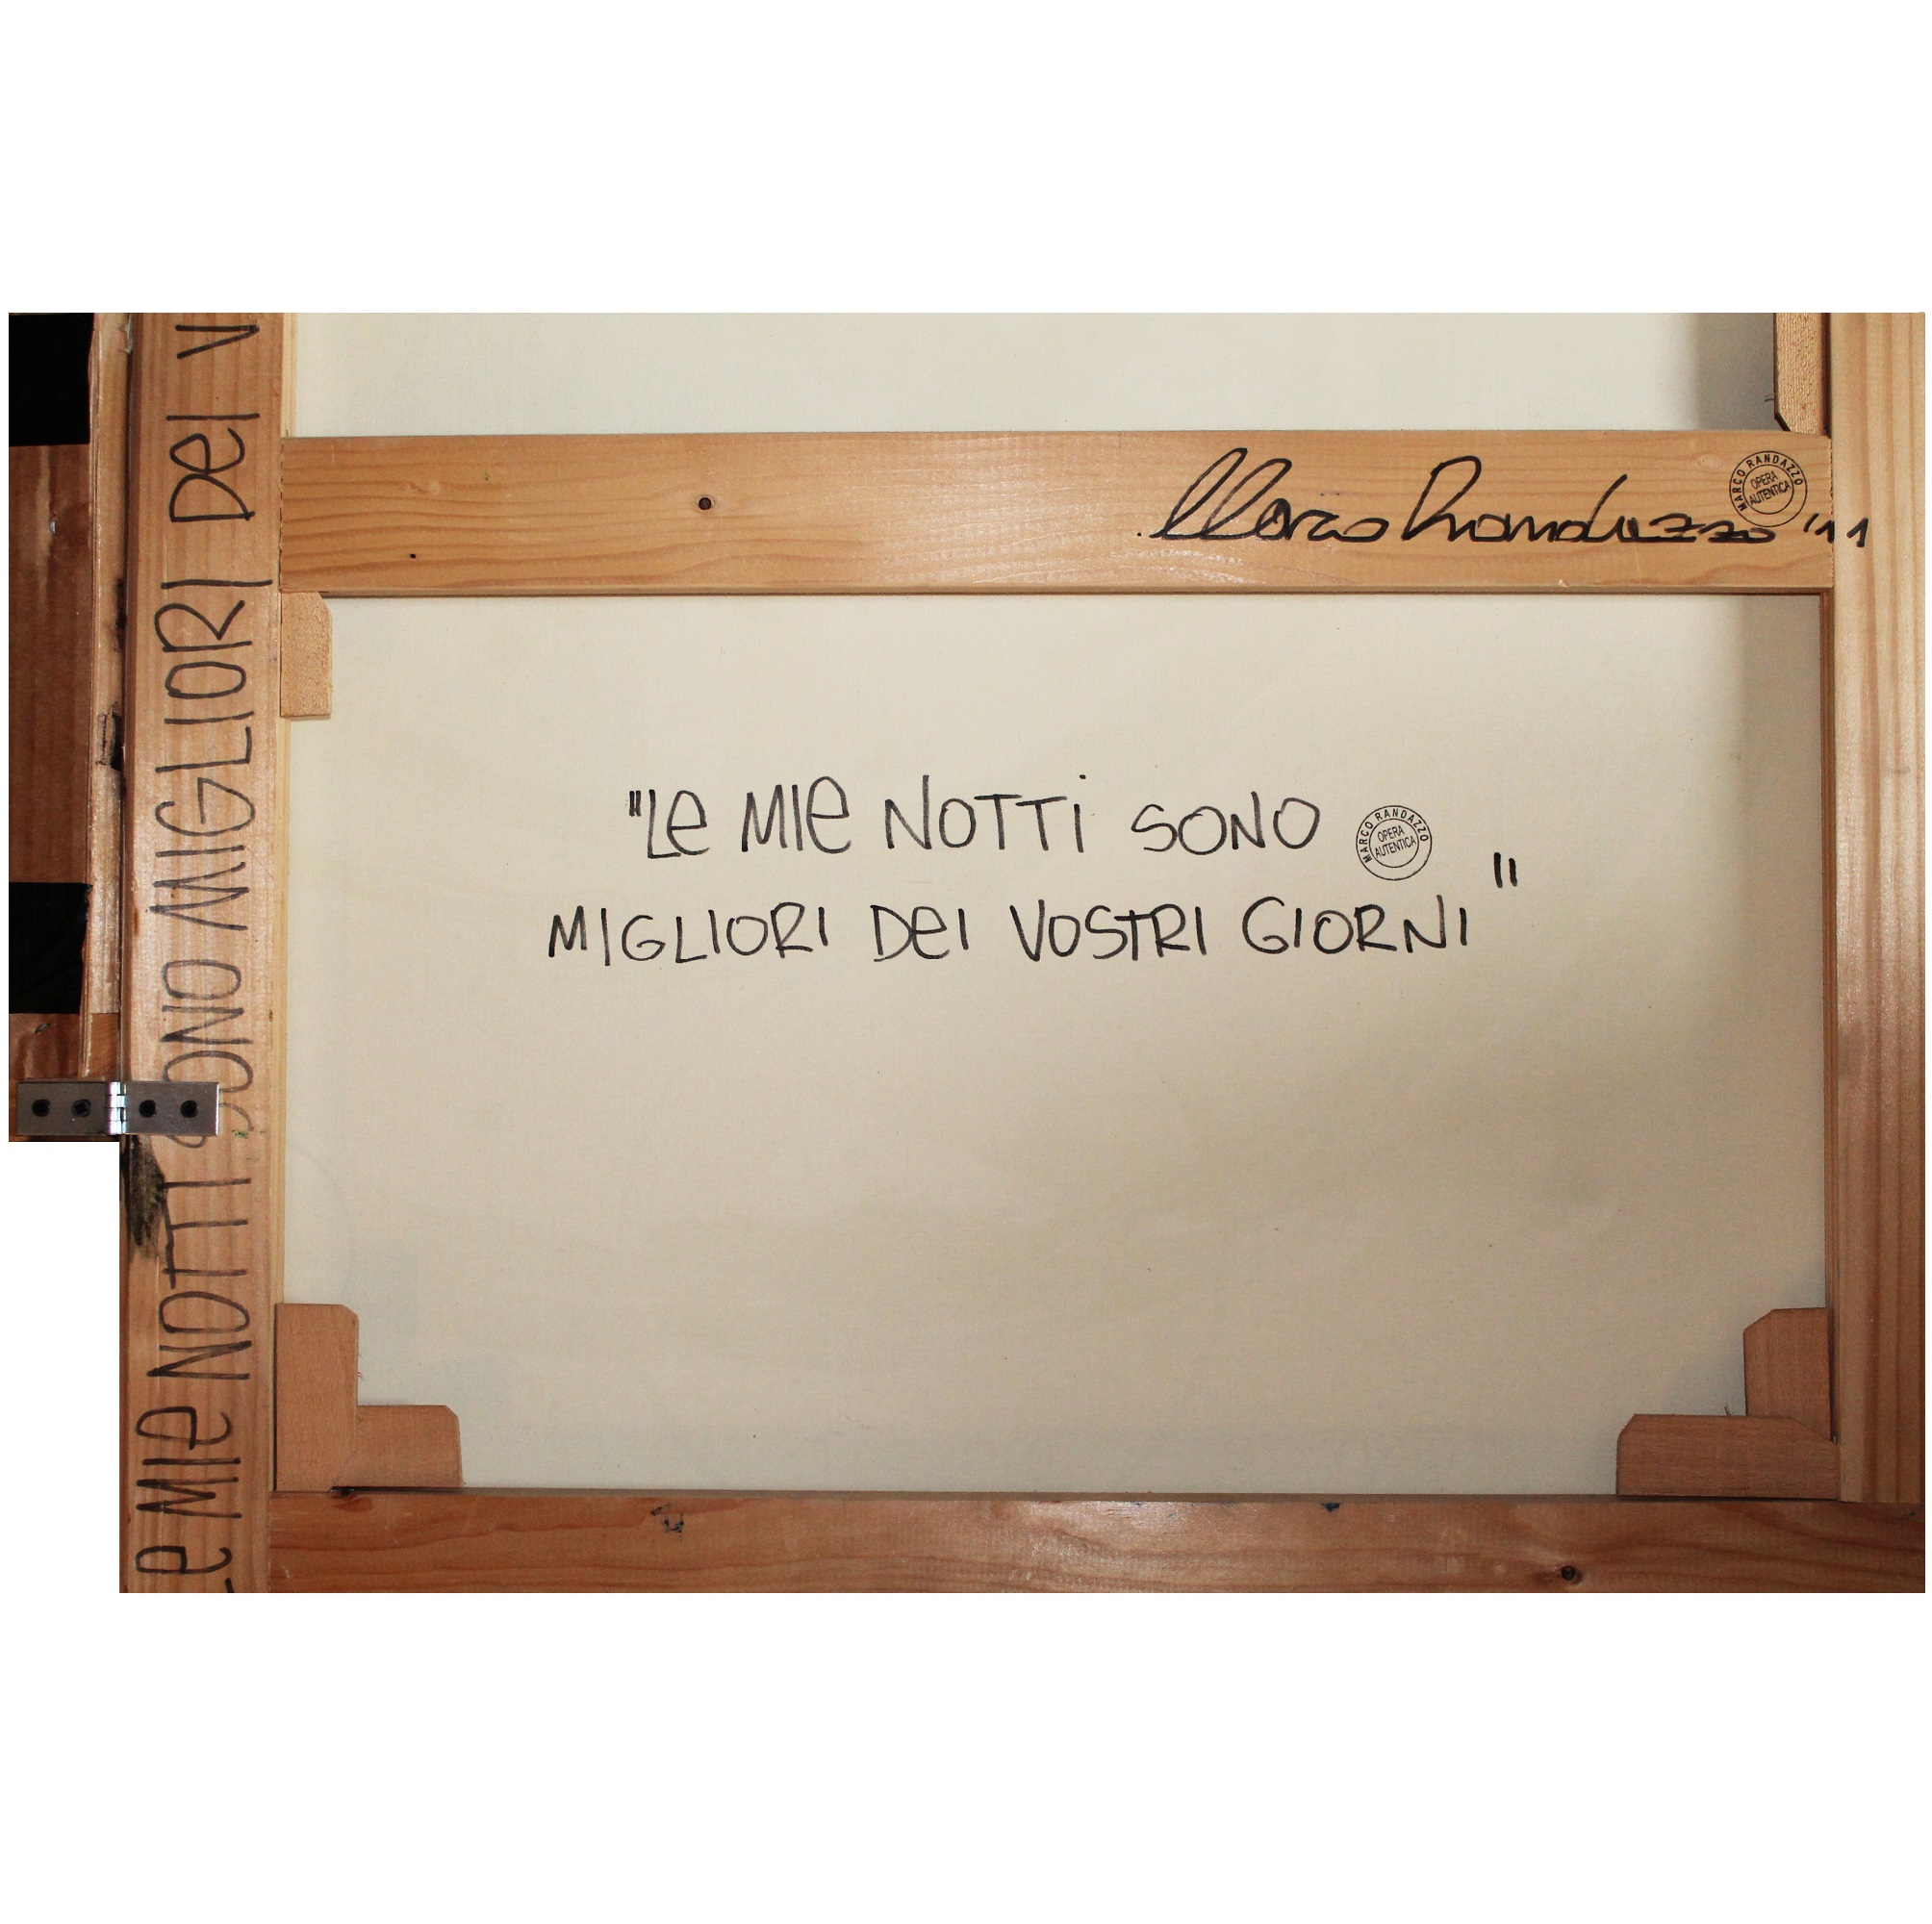 Marco Randazzo '11
MARCO RANDAZZO
OPERA
AUTENTICA
"Le MIe NOTTi SONO
MARCO RANDAZZO
OPERA
AUTENTICA
MIGLIORI DeI VOSTRI GIORNI"
Le MIe NOTTI SONO MIGLIORI DeI V